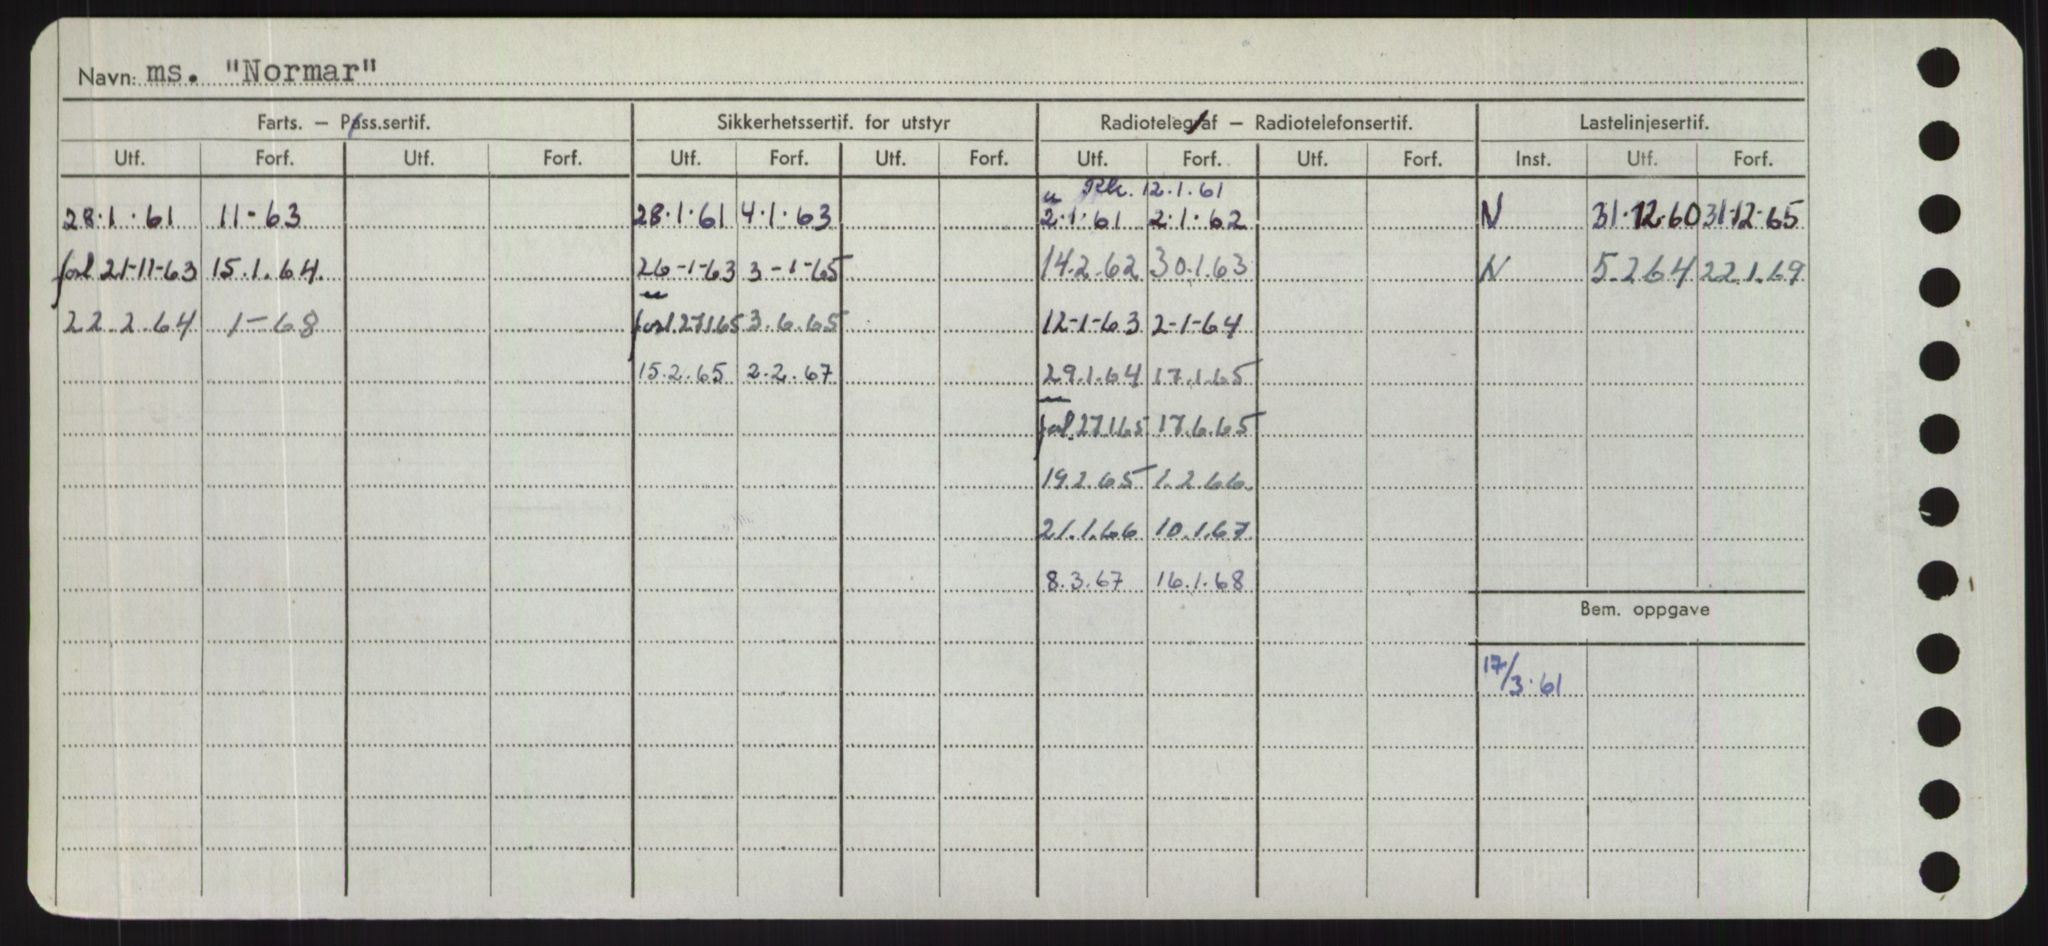 Navn: ms. "Normar"
Farts. — Pass.sertif. Sikkerhetssertif. for utstyr Radiotelegraf — Radiotelefonsertif. Lastelinjesertif.
Utf. Forf. Utf. Forf. Utf. Forf. Utf. Forf. Utf. Forf. Utf. Forf. Inst. Utf. Forf.
12.1.61
28.1.61 11-63 28.1.61 4.1.63 2.1.61 2.1.62 N 31.12.60 31.12.65
forl 21-11-63 15.1.64. 26-1-63 3-1-65 14.2.62 30.1.63 N 5.2.64 22.1.69
22.2.64 1-68 forl. 27.1.65 3.6.65 12-1-63 2-1-64
15.2.65 2.2.67 29.1.64 17.1.65
forl. 27.1.65 17.6.65
19.2.65 1.2.66.
21.1.66 10.1.67
8.3.67 16.1.68
Bem. oppgave
17/3.61